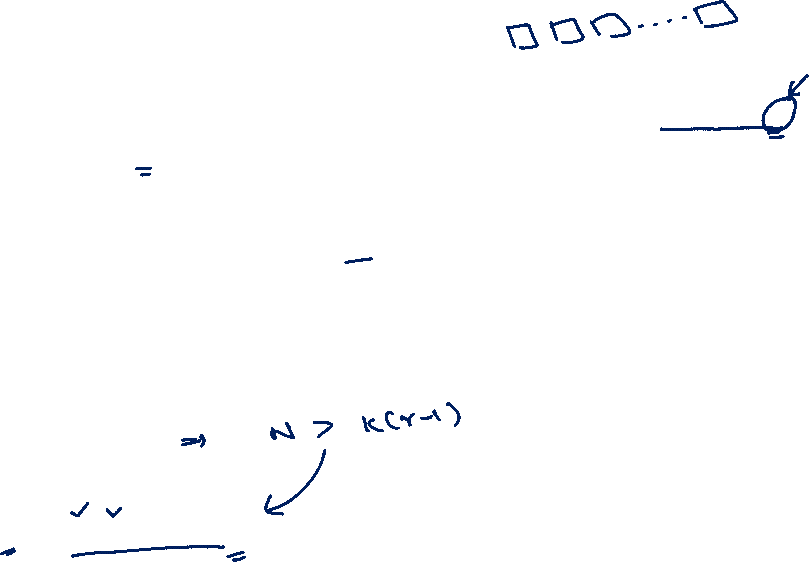 ⇒ N > k(r-1)